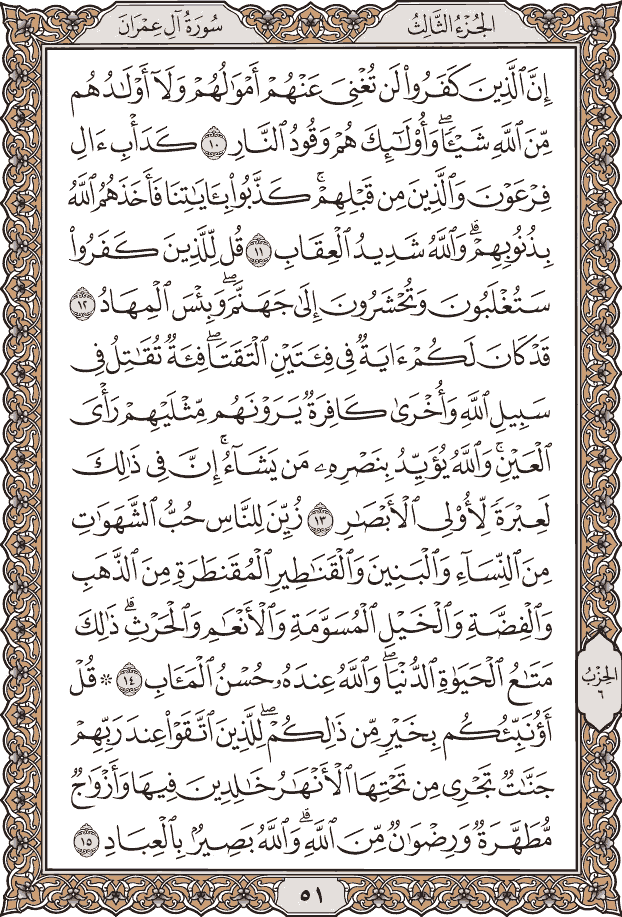 الجُزْءُ الثَّالِثُ
سُورَةُ آلِ عِمْرَانَ
إِنَّ ٱلَّذِينَ كَفَرُوا۟ لَن تُغْنِىَ عَنْهُمْ أَمْوَٰلُهُمْ وَلَآ أَوْلَـٰدُهُم
مِّنَ ٱللَّهِ شَيْـًٔا ۖ وَأُو۟لَـٰٓئِكَ هُمْ وَقُودُ ٱلنَّارِ ١٠ كَدَأْبِ ءَالِ
فِرْعَوْنَ وَٱلَّذِينَ مِن قَبْلِهِمْ ۚ كَذَّبُوا۟ بِـَٔايَـٰتِنَا فَأَخَذَهُمُ ٱللَّهُ
بِذُنُوبِهِمْ ۗ وَٱللَّهُ شَدِيدُ ٱلْعِقَابِ ١١ قُل لِّلَّذِينَ كَفَرُوا۟
سَتُغْلَبُونَ وَتُحْشَرُونَ إِلَىٰ جَهَنَّمَ ۚ وَبِئْسَ ٱلْمِهَادُ ١٢
قَدْ كَانَ لَكُمْ ءَايَةٌ فِى فِئَتَيْنِ ٱلْتَقَتَا ۖ فِئَةٌ تُقَـٰتِلُ فِى
سَبِيلِ ٱللَّهِ وَأُخْرَىٰ كَافِرَةٌ يَرَوْنَهُم مِّثْلَيْهِمْ رَأْىَ
ٱلْعَيْنِ ۚ وَٱللَّهُ يُؤَيِّدُ بِنَصْرِهِۦ مَن يَشَآءُ ۗ إِنَّ فِى ذَٰلِكَ
لَعِبْرَةً لِّأُو۟لِى ٱلْأَبْصَـٰرِ ١٣ زُيِّنَ لِلنَّاسِ حُبُّ ٱلشَّهَوَٰتِ
مِنَ ٱلنِّسَآءِ وَٱلْبَنِينَ وَٱلْقَنَـٰطِيرِ ٱلْمُقَنطَرَةِ مِنَ ٱلذَّهَبِ
وَٱلْفِضَّةِ وَٱلْخَيْلِ ٱلْمُسَوَّمَةِ وَٱلْأَنْعَـٰمِ وَٱلْحَرْثِ ۗ ذَٰلِكَ
مَتَـٰعُ ٱلْحَيَوٰةِ ٱلدُّنْيَا ۖ وَٱللَّهُ عِندَهُۥ حُسْنُ ٱلْمَـَٔابِ ١٤ ۞ قُلْ
الحِزْبُ
٦
أَؤُنَبِّئُكُم بِخَيْرٍ مِّن ذَٰلِكُمْ ۖ لِلَّذِينَ ٱتَّقَوْا۟ عِندَ رَبِّهِمْ
جَنَّـٰتٌ تَجْرِى مِن تَحْتِهَا ٱلْأَنْهَـٰرُ خَـٰلِدِينَ فِيهَا وَأَزْوَٰجٌ
مُّطَهَّرَةٌ وَرِضْوَٰنٌ مِّنَ ٱللَّهِ ۗ وَٱللَّهُ بَصِيرٌۢ بِٱلْعِبَادِ ١٥
٥١